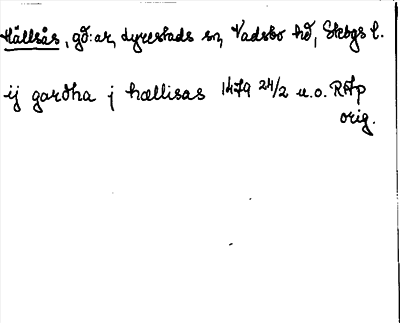 Hällsås, gd:ar, Lyrestads sn, Vadsbo hd, Skbgs l.
ij gardha j hællisas 1479 24/2 u.o. RAp
orig.